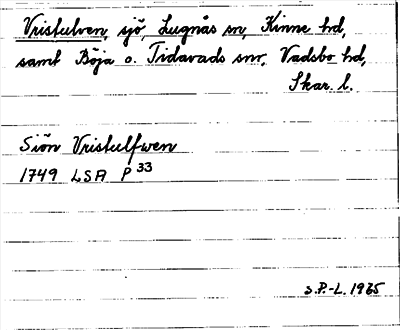 Vristulven, sjö, Lugnås sn, Kinne hd,
samt Böja o. Tidavads snr, Vadsbo hd,
Skar. l.
Siön Vristulfwen
1749 LSA P 33
S.P.-L. 1965